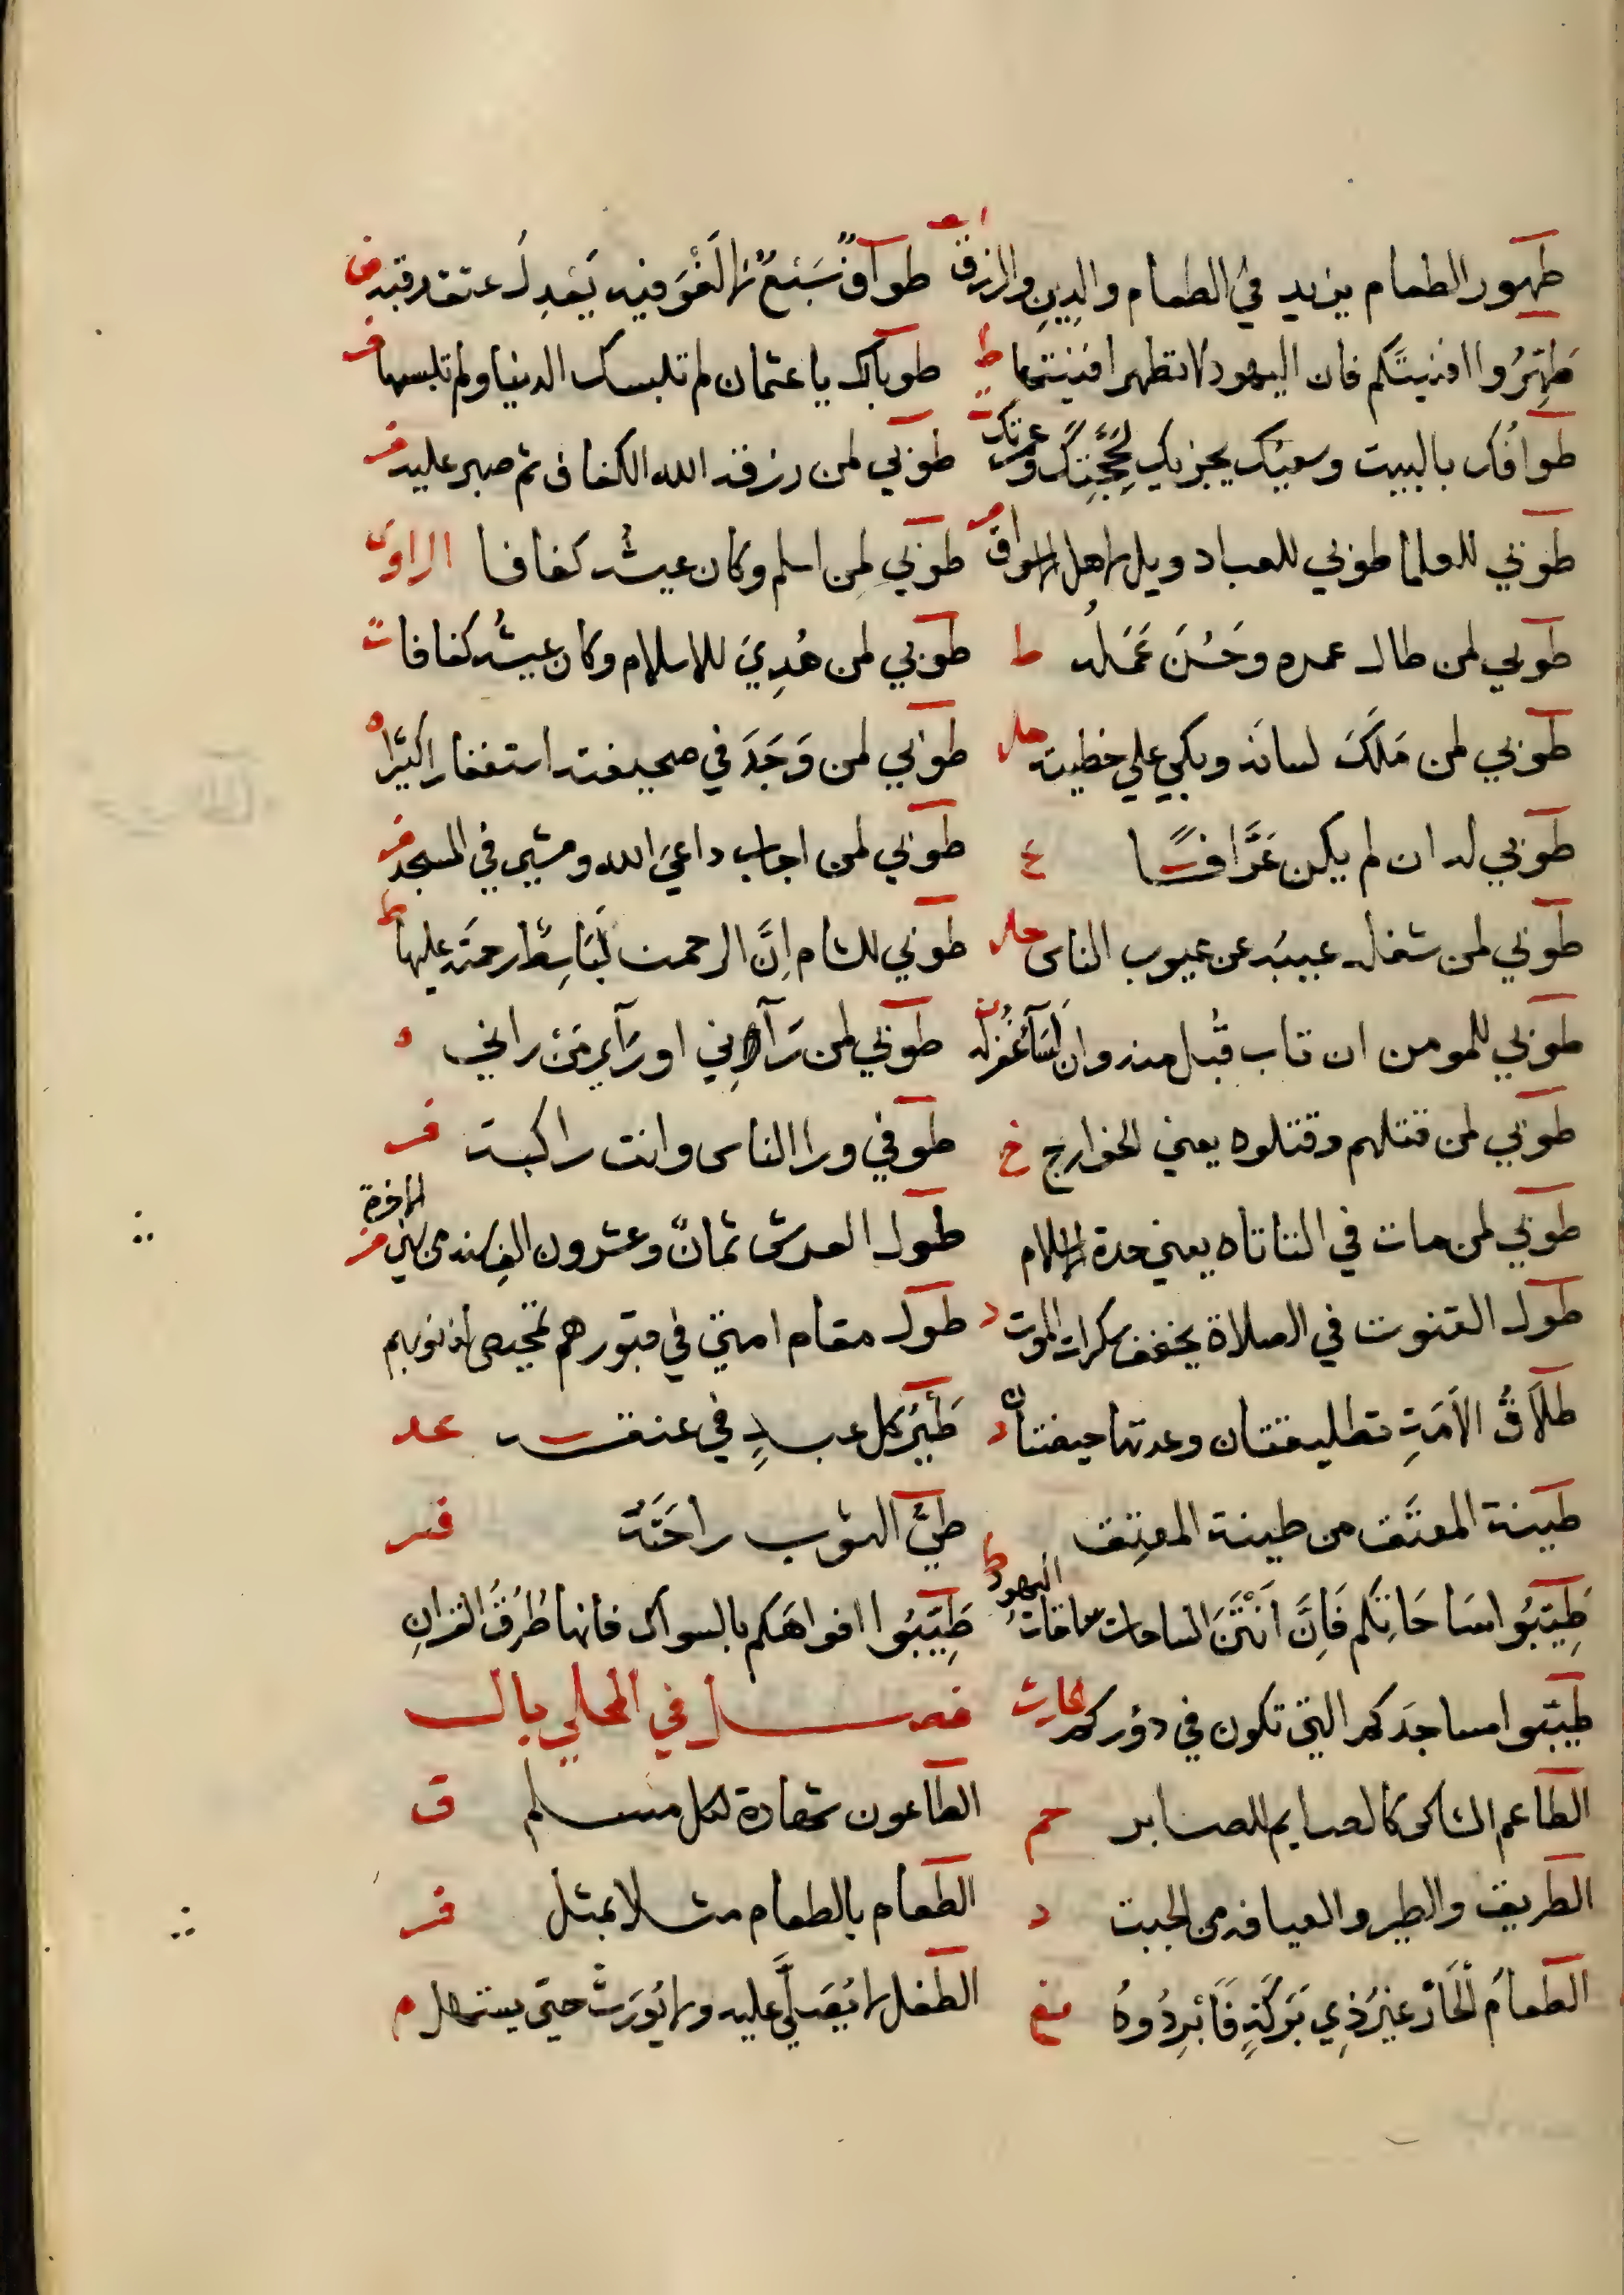 طهور الطعام يزيد في الطعام والدِينِ والرزق طوافٌ سَبْعٌ لا لَغْوَ فيه يَعْدِلُ عتقه رقبه
طَهِّرُوا افنيتَكم فان اليهود لا تطهر افنيتها ط طوباك يا عثمان لم تلبسك الدنيا ولم تلبسها فر
طوافُك بالبيت وسعيُك يجزيك لحَجَّتِكَ وعمرتك طوبي لمن رزقه الله الكفاف ثم صبر عليه فر
طوبي للعلما طوبي للعباد ويل لاهل الاسواق فر طوبي لمن اسلم وكان عيشُه كفافا الراوي
طوبي لمن طال عمره وحَسُنَ عَمَلُه ط طوبي لمن هُدِيَ للاسلام وكان عيشُه كفافا ت
طوبي لمن مَلَكَ لسانَه وبكي علي خطيته حل طوبي لمن وَجَدَ في صحيفته استغفارا كثيرا ه
طوبي له ان لم يكن عَرَّافًا ع طوبي لمن اجاب داعيَ الله ومشي في المسجد فر
طوبي لمن شغله عيبُه عن عيوب الناس حل طوبي للشام اِنَّ الرحمن لَبَاسِطٌ رحمتَه عليها ط
طوبي للمومن ان تاب قُبل منه وان اسَآءَ غُفر له طوبي لمن رَآنِي او رَآي مَنْ راني
طوبي لمن قتلهم وقتلوه يعني الخوارج خ طوفي ورا الناس وانت راكبة فر
طوبي لمن مات في الناناه يعني حدة الاسلام طول العرش ثمانٌ وعشرون الف سنه من سني الاخرة فر
طول القنوت في الصلاة يخفف سكرات الموت د طول مقام امتي في قبورهم تمحيص لذنوبهم
طلَاقُ الاَمَتِ تطليقتان وعدتها حيضتان د طَيْرُ كل عبدٍ في عنقه عد
طينة المعتَق من طينة المعتِق طيُّ الثوب راحَتُهُ فر
طَيِّبُوا سَاحَاتِكم فَاِنَّ اَنْتَنَ الساحات ساحاتُ اليهود ط طَيِّبُوا افواهَكم بالسواك فانها طُرُقُ القرانِ
طيّبوا مساجدَكم التي تكون في دؤركم الحارث فصل في المحلي بال
الطاعم الشاكر كالصايم الصابر حم الطاعون شهادة لكل مسلم ق
الطريق والطير والعيافه من الجبت د الطعام بالطعام مثلا بمثل فر
الطعامُ الحَارُّ غيرُ ذِي بَرَكَةٍ فَابْرِدُوهُ الطفل لا يُصَلَّي عليه ولا يُورَثُ حتي يستهل م